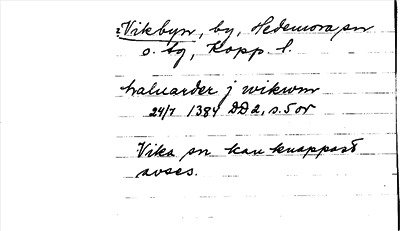 Vikbyn, by, Hedemora sn
o. tg, Kopp. l.
haluarder j wikwm
24/7 1384 DD 2, s. 5 or
Vika sn kan knappast
avses.